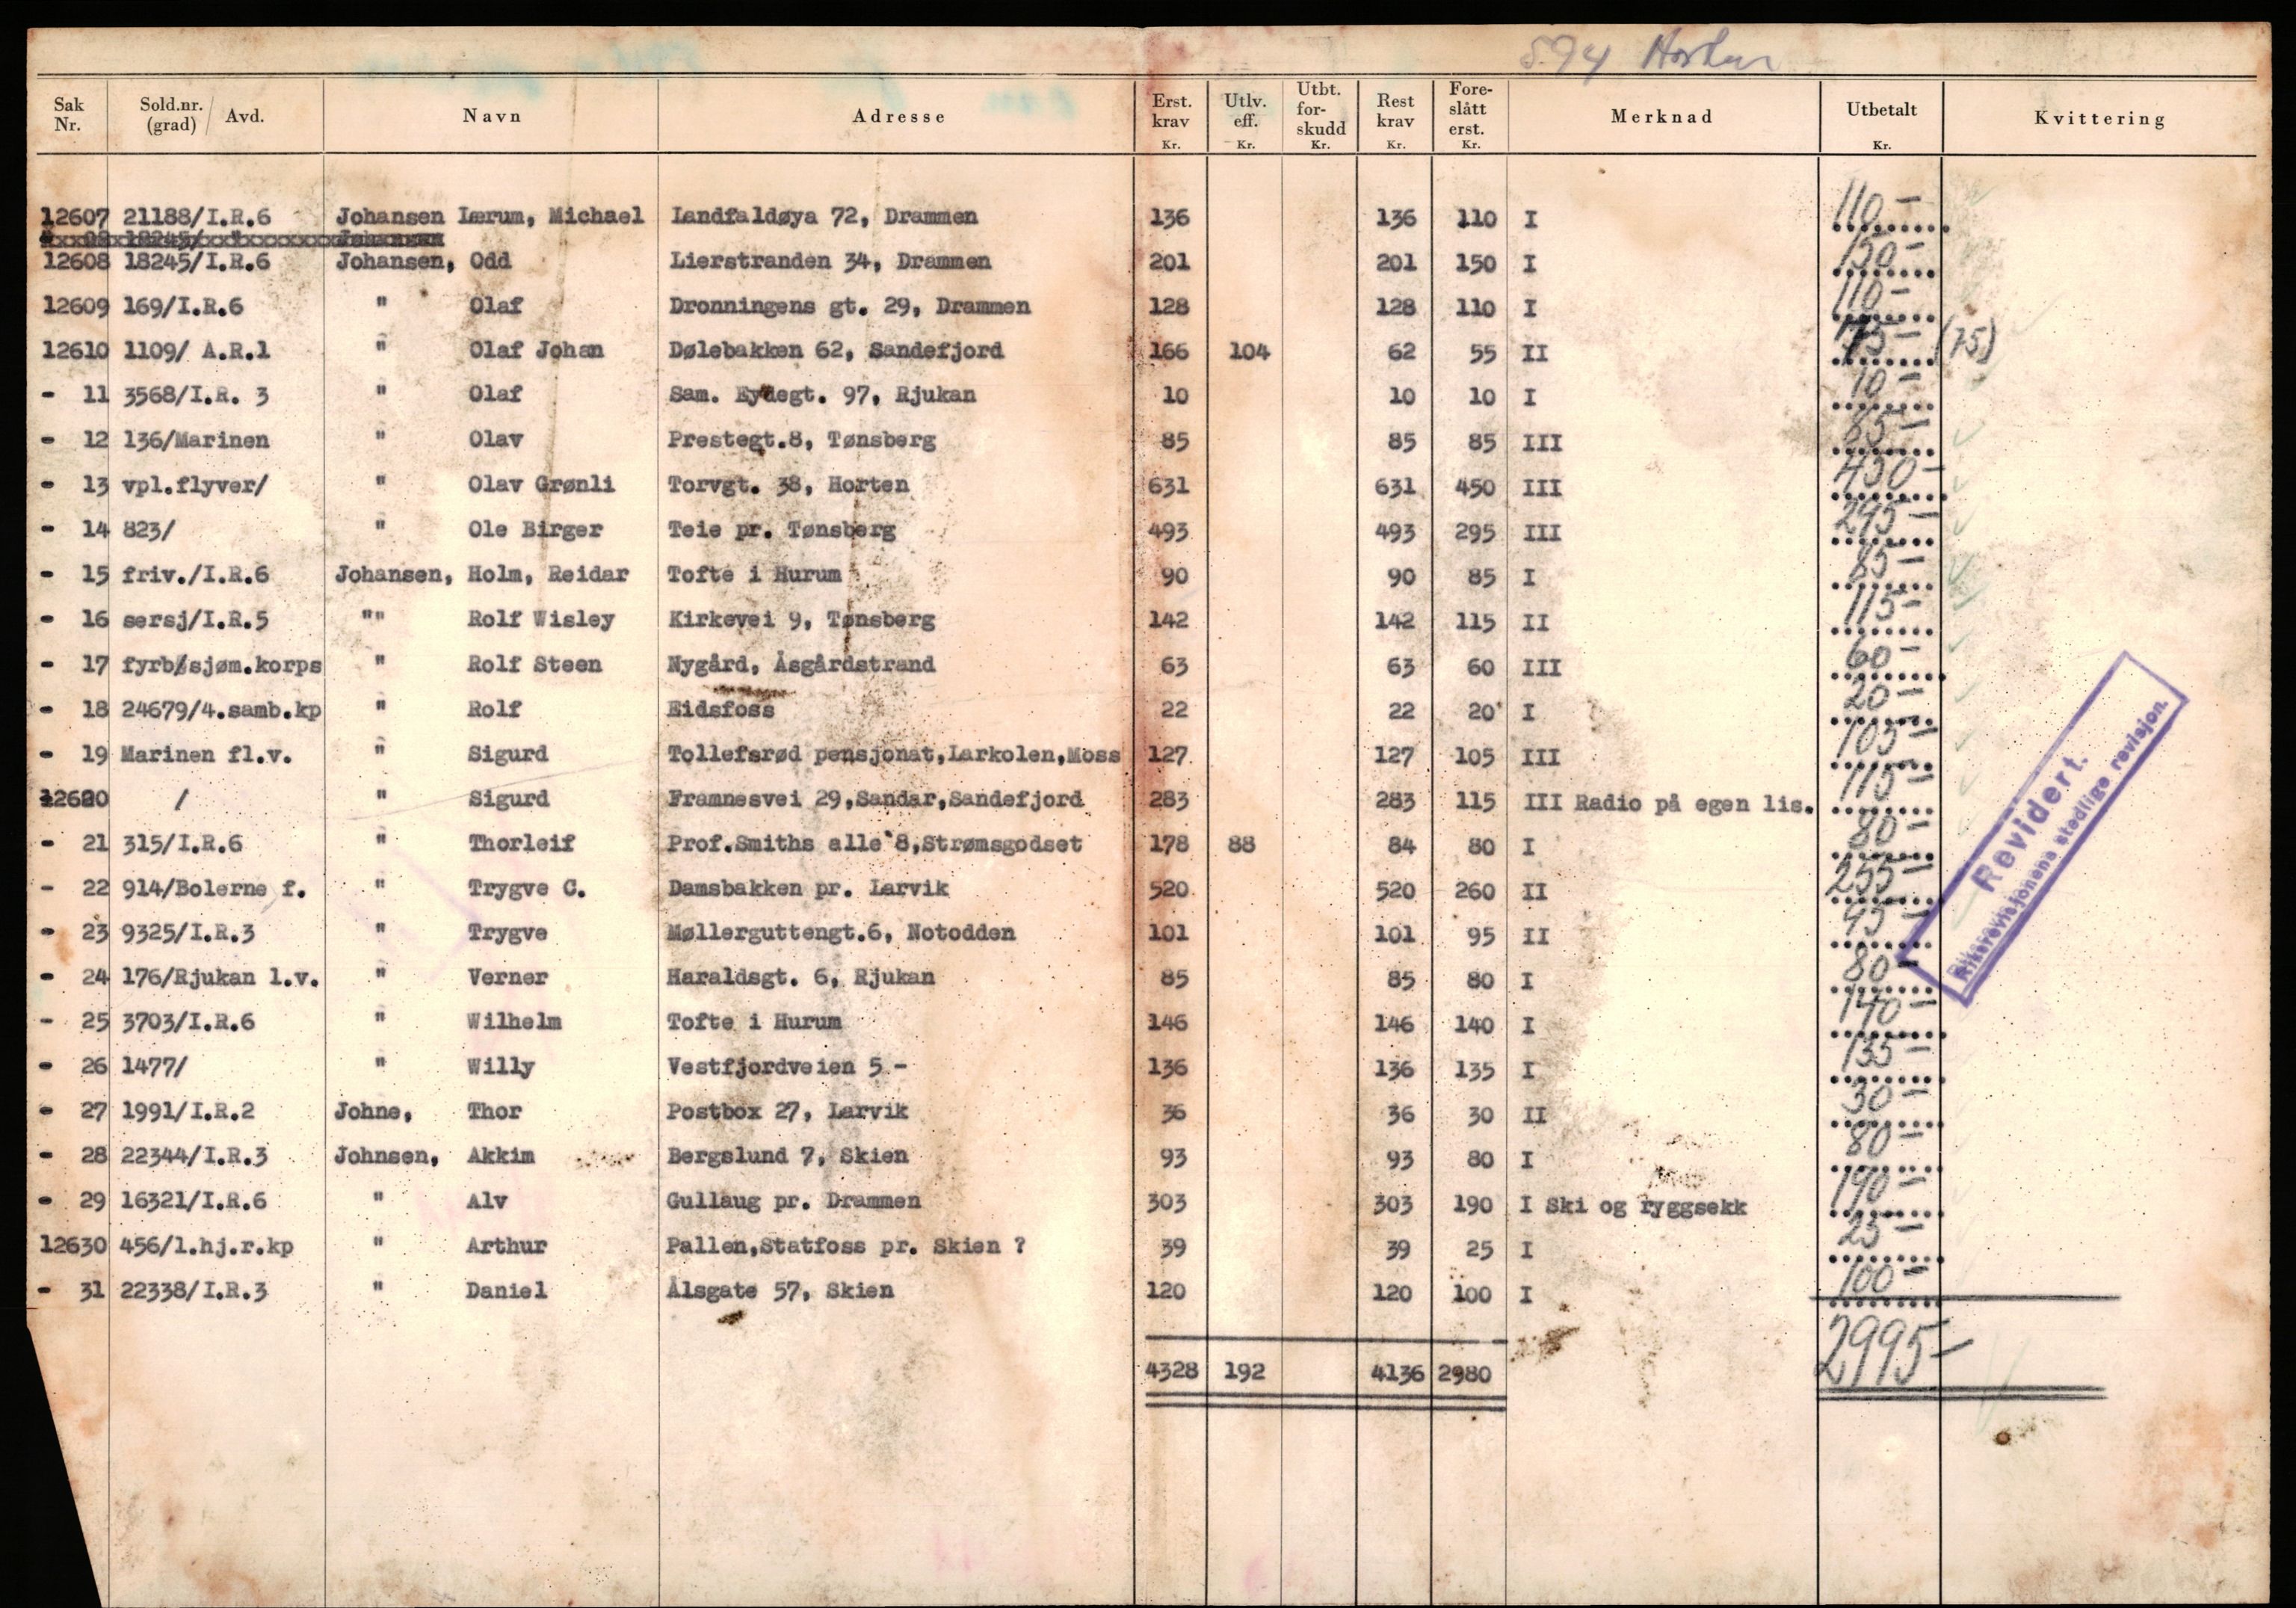 S.94 Horten
Sak Nr. Sold.nr. (grad) / Avd. Navn Adresse Erst. krav Kr. Utlv. eff. Kr. Utbt. for- skudd Kr. Rest krav Kr. Fore- slått erst. Kr. Merknad Utbetalt Kr. Kvittering
12607 21188/I.R.6 Johansen Lærum, Michael Landfaldøya 72, Drammen 136 136 110 I 110-
12608 18245/I.R.6 Johansen, Odd Lierstranden 34, Drammen 201 201 150 I 150-
12609 169/I.R.6 " Olaf Dronningens gt. 29, Drammen 128 128 110 I 110-
12610 1109/ A.R.1 " Olaf Johan Dølebakken 62, Sandefjord 166 104 62 55 II 75- (75)
- 11 3568/I.R. 3 " Olaf Sam. Eydegt. 97, Rjukan 10 10 10 I 10-
- 12 136/Marinen " Olav Prestegt.8, Tønsberg 85 85 85 III 85-
- 13 vpl.flyver/ " Olav Grønli Torvgt. 38, Horten 631 631 450 III 450-
- 14 823/ " Ole Birger Teie pr. Tønsberg 493 493 295 III 295-
- 15 friv./I.R.6 Johansen, Holm, Reidar Tofte i Hurum 90 90 85 I 85-
- 16 sersj/I.R.5 "" Rolf Wisley Kirkevei 9, Tønsberg 142 142 115 II 115-
- 17 fyrb/sjøm.korps " Rolf Steen Nygård, Åsgårdstrand 63 63 60 III 60-
- 18 24679/4.samb.kp " Rolf Eidsfoss 22 22 20 I 20-
- 19 Marinen fl.v. " Sigurd Tollefsrød pensjonat,Larkolen,Moss 127 127 105 III 105-
12620 / " Sigurd Framnesvei 29,Sandar,Sandefjord 283 283 115 III Radio på egen lis. 115-
- 21 315/I.R.6 " Thorleif Prof.Smiths alle 8,Strømsgodset 178 88 84 80 I 80-
- 22 914/Bolerne f. " Trygve C. Damsbakken pr. Larvik 520 520 260 II 255-
- 23 9325/I.R.3 " Trygve Møllerguttengt.6, Notodden 101 101 95 II 95-
- 24 176/Rjukan l.v. " Verner Haraldsgt. 6, Rjukan 85 85 80 I 80-
- 25 3703/I.R.6 " Wilhelm Tofte i Hurum 146 146 140 I 140-
- 26 1477/ " Willy Vestfjordveien 5 - 136 136 135 I 135-
- 27 1991/I.R.2 Johne, Thor Postbox 27, Larvik 36 36 30 II 30-
- 28 22344/I.R.3 Johnsen, Akkim Bergslund 7, Skien 93 93 80 I 80-
- 29 16321/I.R.6 " Alv Gullaug pr. Drammen 303 303 190 I Ski og ryggsekk 190-
12630 456/l.hj.r.kp " Arthur Pallen,Statfoss pr. Skien ? 39 39 25 I 25-
- 31 22338/I.R.3 " Daniel Ålsgate 57, Skien 120 120 100 I 100-
4328 192 4136 2980 2995-
Revidert.
Riksrevisjonens stedlige revisjon.